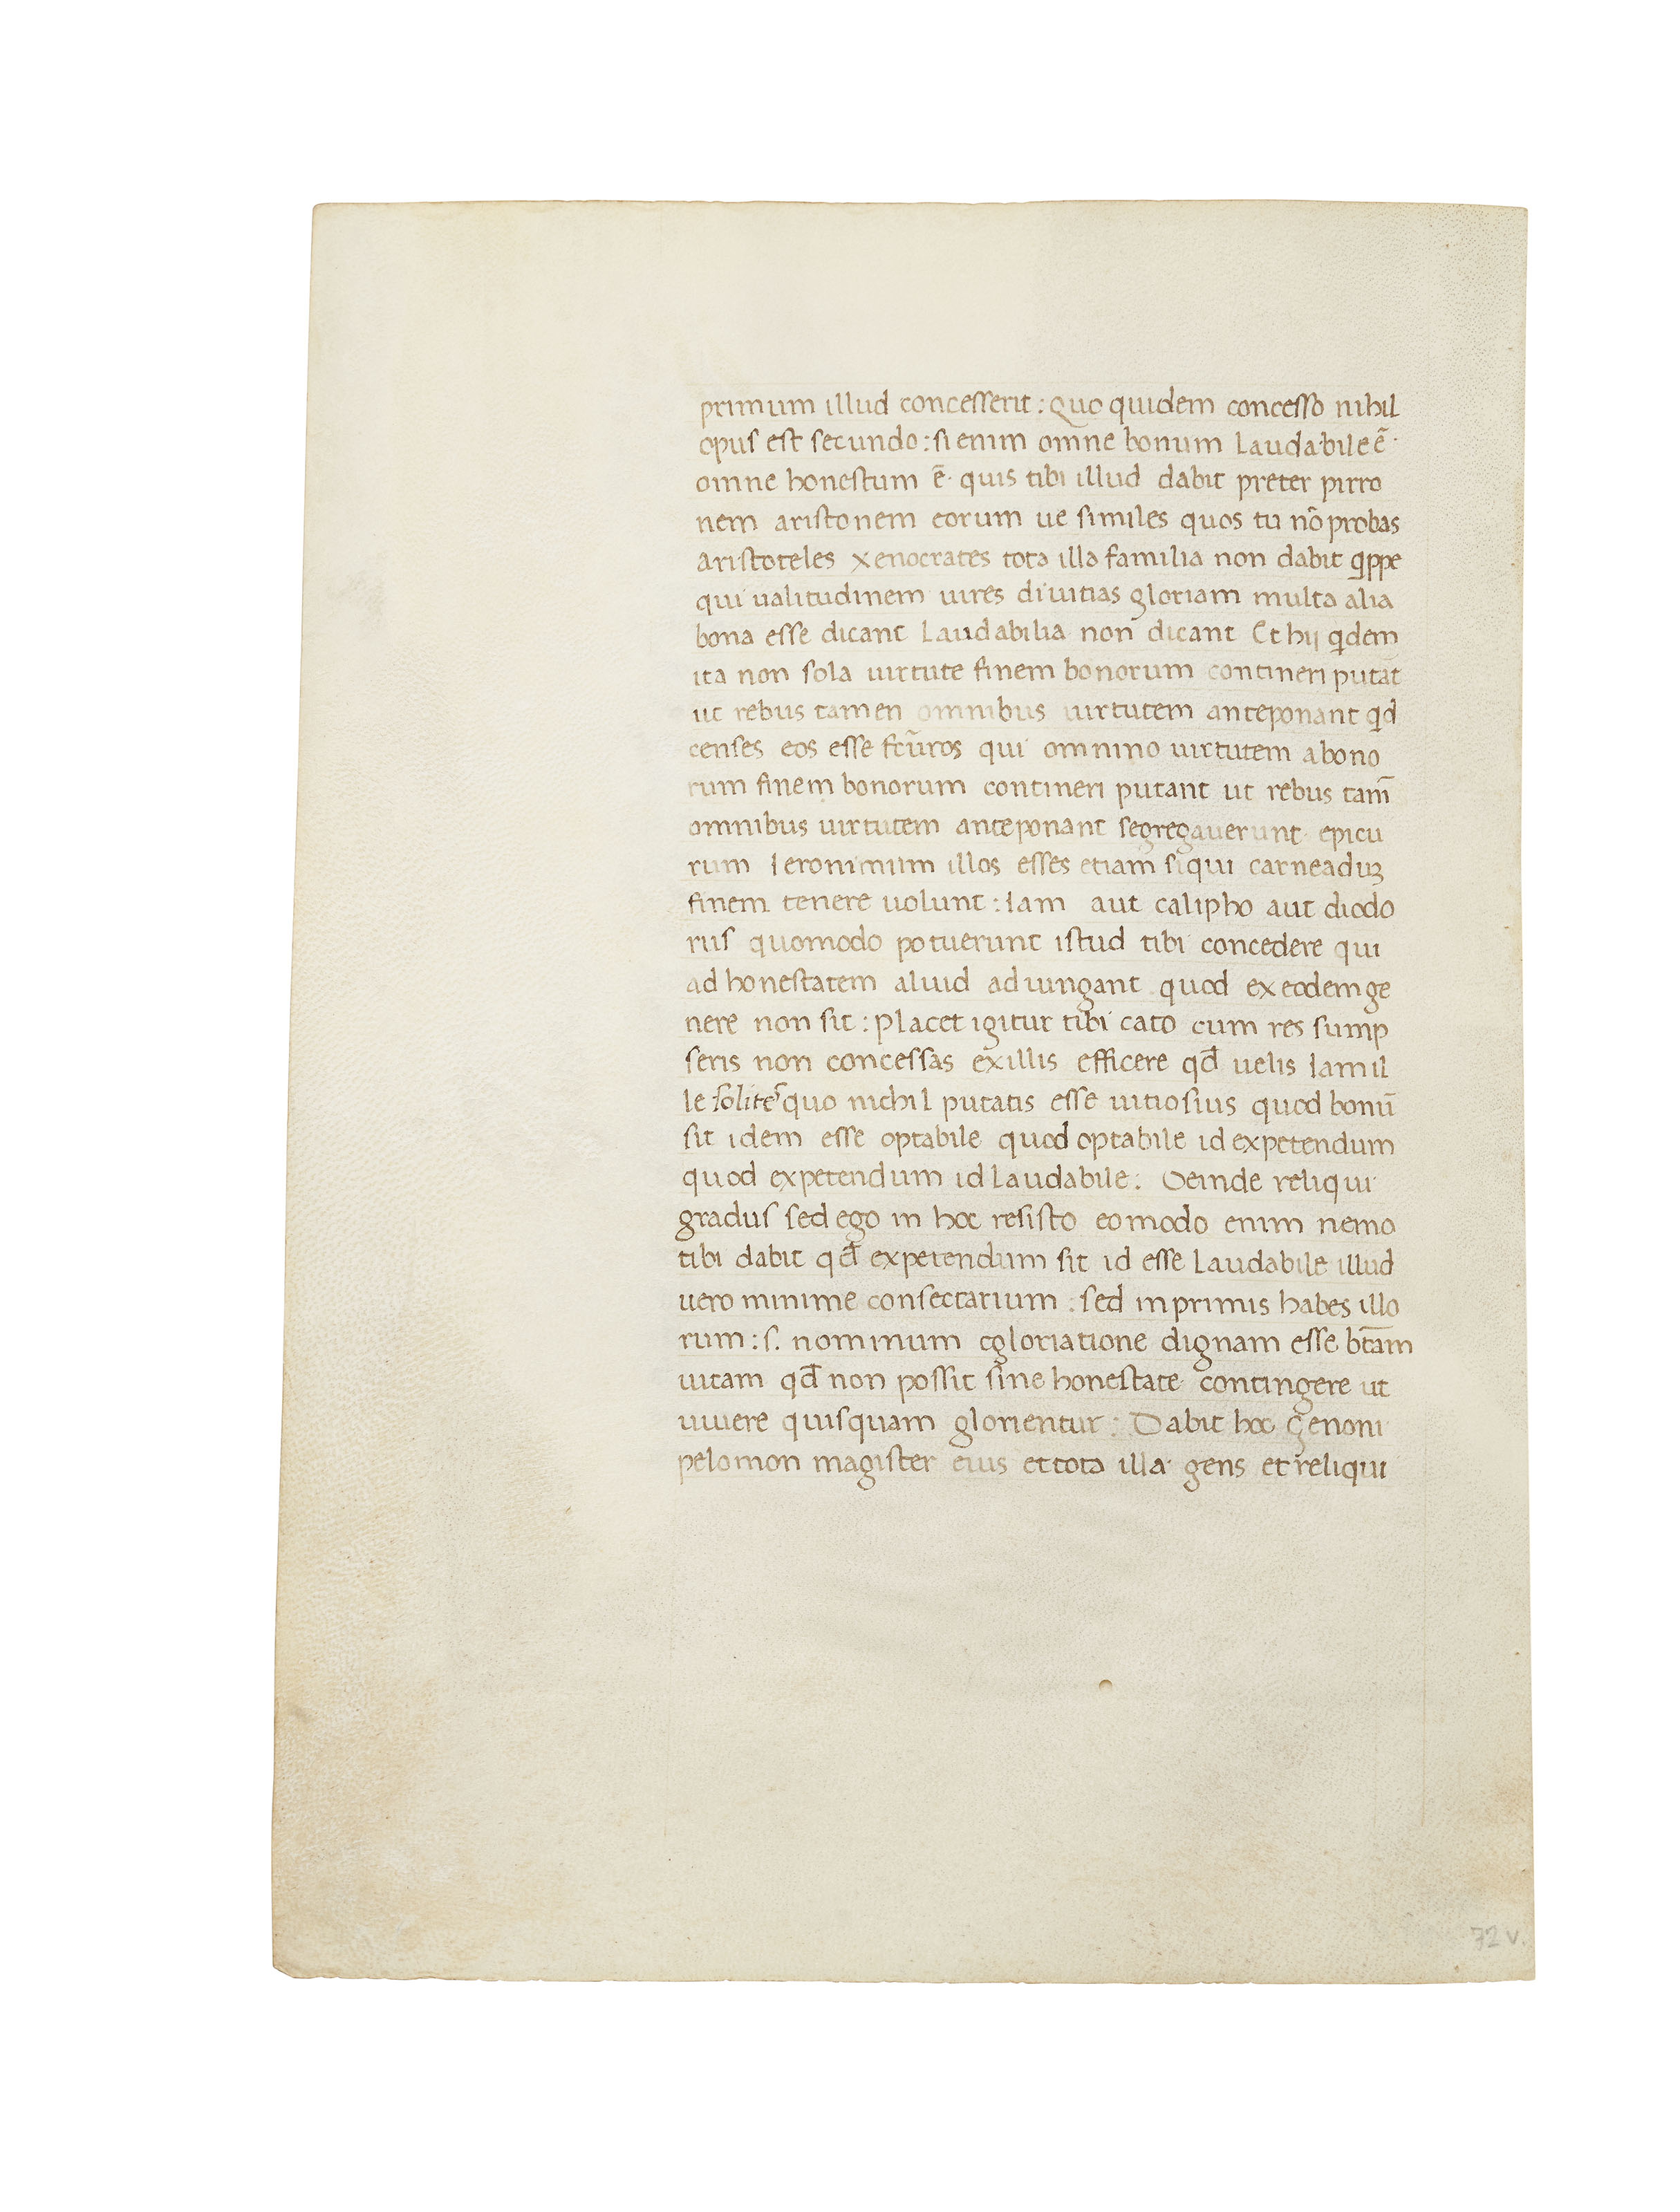 primum illud concesserit : Quo quidem concesso nihil
opus est secundo : si enim omne bonum laudabile ē ·
omne honestum ē · quis tibi illud dabit preter pirro
nem aristonem eorum ue similes quos tu nō probas
Aristoteles xenocrates tota illa familia non dabit qippe
qui ualitudinem uires diuitias gloriam multa alia
bona esse dicant laudabilia non dicant Et hij qidem
ita non sola uirtute finem bonorum contineri putāt
ut rebus tamen omnibus uirtutem anteponant qid
censes eos esse fct̄uros qui omnino uirtutem abono
rum finem bonorum contineri putant ut rebus tam̄
omnibus uirtutem anteponant segregauerunt · epicu
rum Ieronimum illos esses etiam siqui carneaduꝫ
finem tenere uolunt : Iam aut calipho aut diodo
rus quomodo potuerunt istud tibi concedere qui
ad honestatem aliud adiungant quod ex eodem ge
nere non sit : placet igitur tibi cato cum res sump
seris non concessas exillis efficere qd̄ uelis Iam il
le solites quo nichil putatis esse uitiosius quod bonū
sit idem esse optabile quod optabile id expetendum
quod expetendum id laudabile : Deinde reliqui
gradus sed ego in hoc resisto eo modo enim nemo
tibi dabit qd̄ expetendum sit id esse laudabile illud
uero minime consectarium : sed inprimis habes illo
rum : s. nominum cgloriatione dignam esse bt̄am
uitam qd̄ non possit sine honestate contingere ut
uiuere quisquam glorientur : Dabit hoc çenoni
pelomon magister eius et tota illa gens et reliqui
72 v.